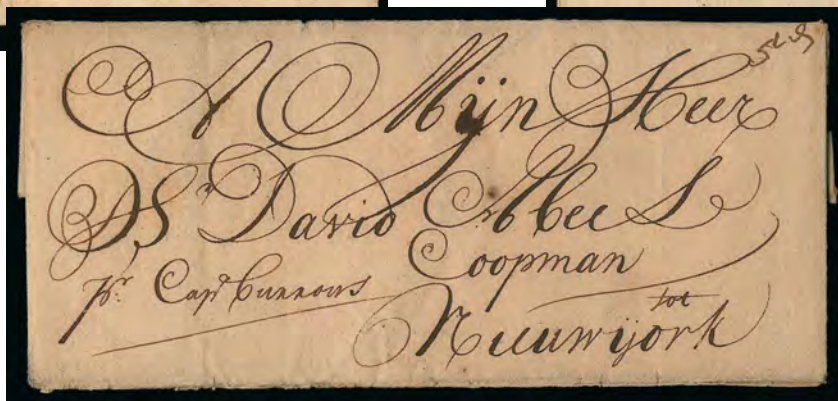 A Mijn Heer
Sr David AbeeL
Coopman
pr. Capt Burrows
tot
Nieuwijork